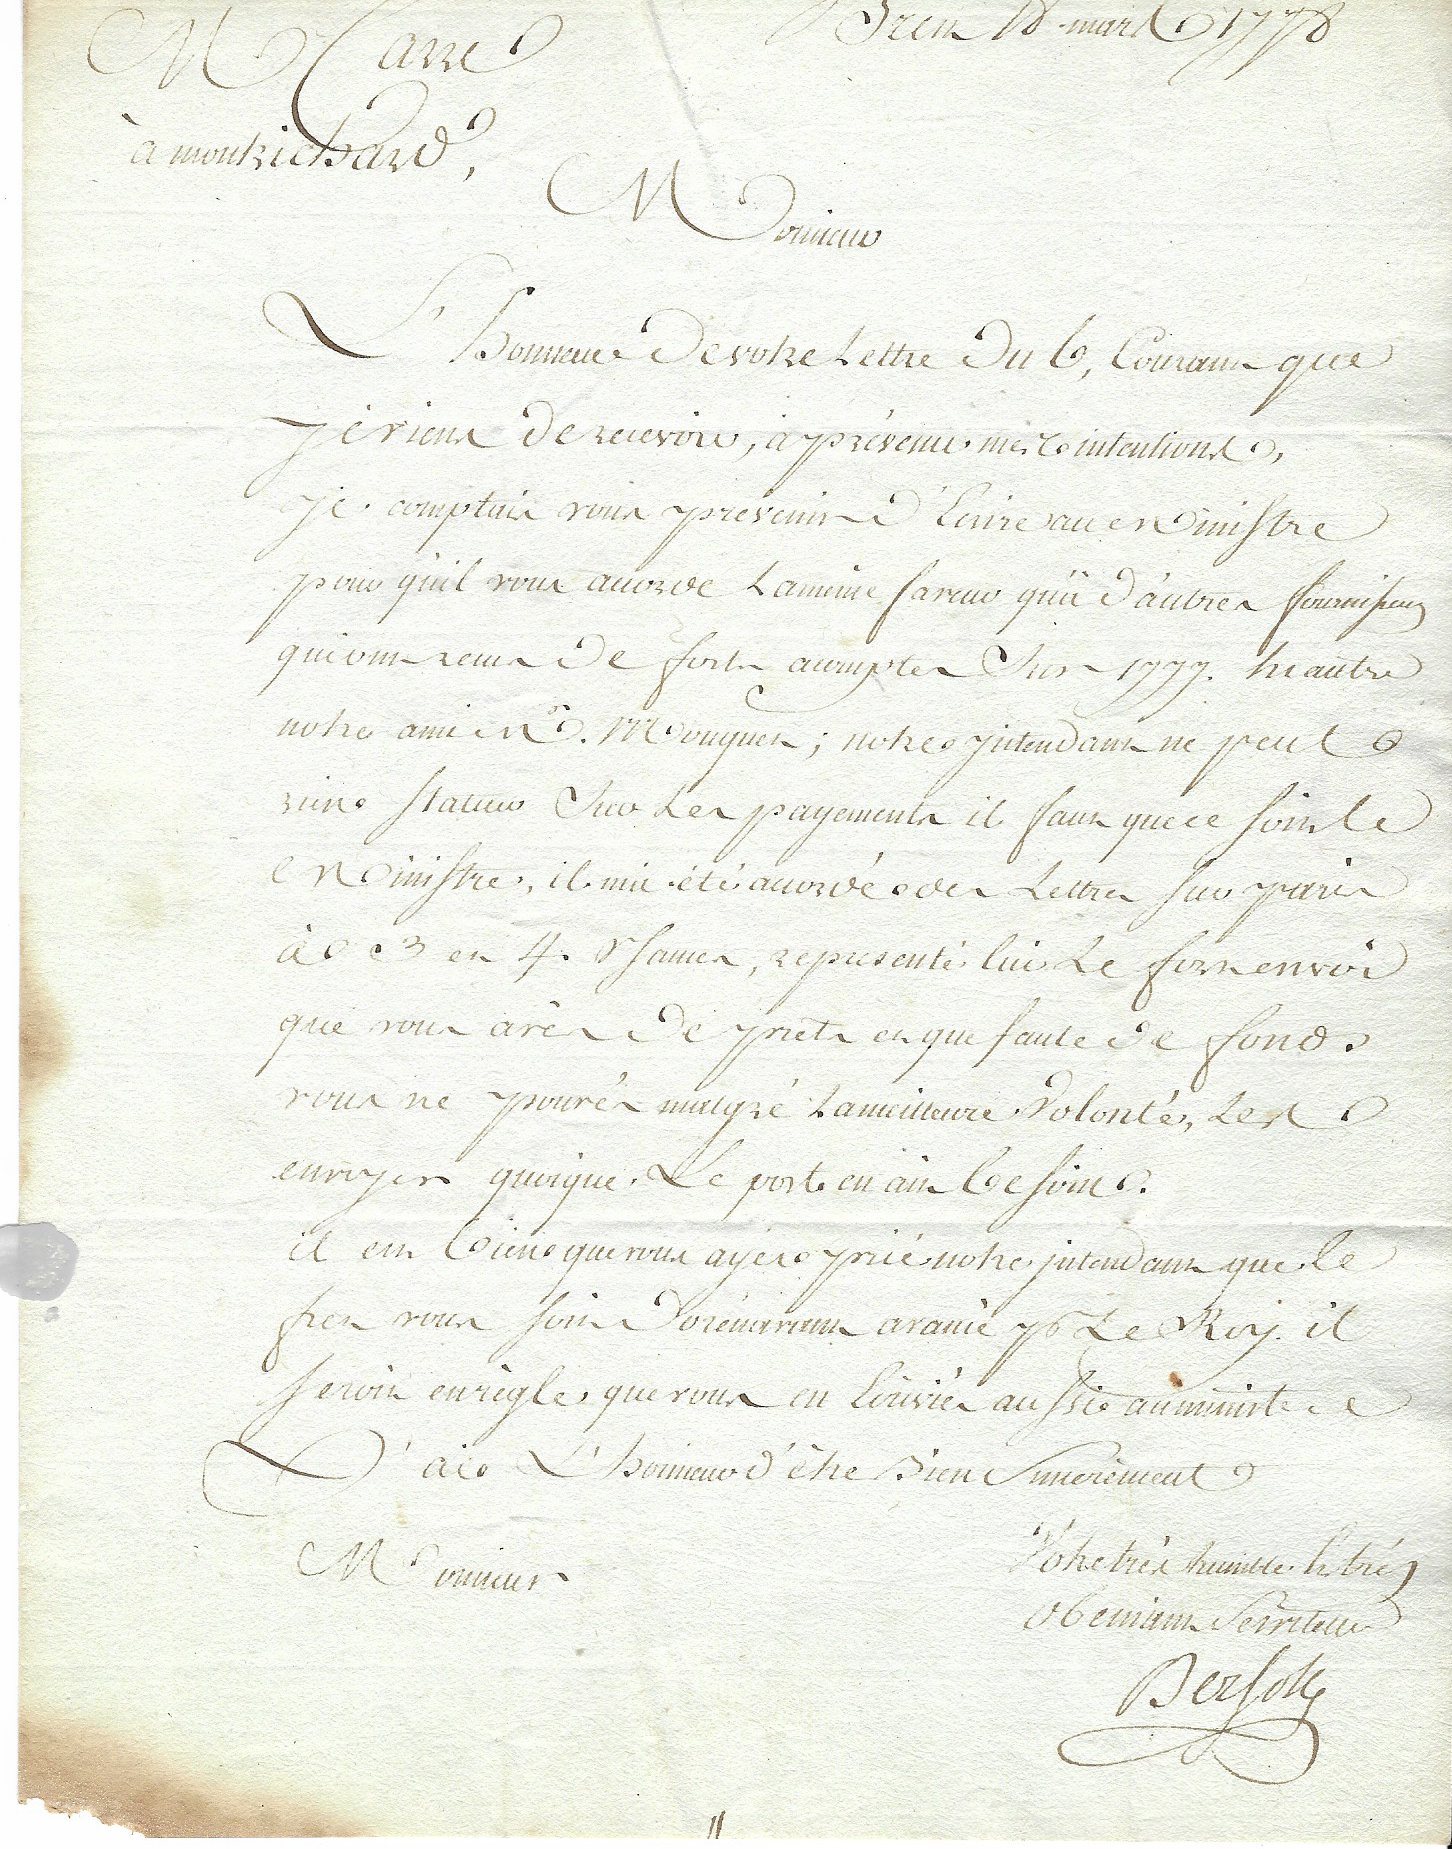 M Carré
Brest 18 mars 1778
à montrichard,
Monsieur
L'honneur de votre Lettre du 6, Courant que
je viens de recevoir, a prévenu mes intentions,
je comptais vous prévenir d'Ecrire au Ministre
pour qu'il vous accorde La même faveur qu'à d'autres fournisseurs
qui ont reçus de forts acomptes sur 1777. et autre
notre ami Mr. Mougues; notre jntendant ne peut
rien statuer sur Les payements il faut que ce soit le
Ministre, il m'a été accordé des Lettres sur paris
à 3 et 4. Usances, representé lui Le fort envoi
que vous avés de prets et que faute de fonds
vous ne pourés malgré La meilleure Volonté, Les
envoyer quoique Le port en ait besoin.
il est bien que vous ayez prié notre jntendant que le
fret vous soit dorénavant avancé pr Le Roy. il
seroit en règle que vous en Ecriviés aussi au ministre
J'ai L'honneur d'être Bien Sincèrement
Monsieur
Votre très humble et très
obeissant Serviteur
Bersolle